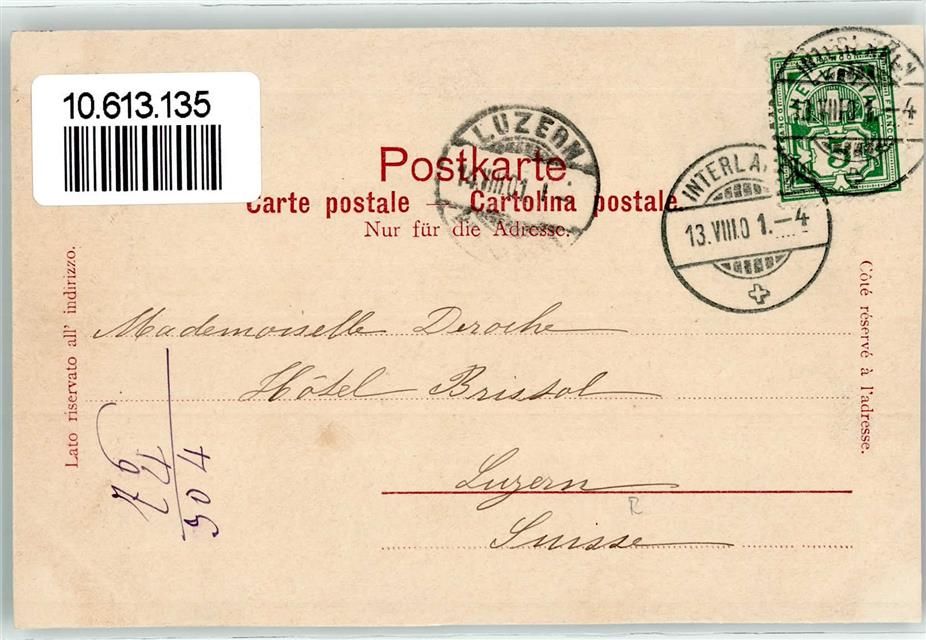 10.613.135
Postkarte
Carte postale — Cartolina postale.
Nur für die Adresse.
LUZERN
14.VIII.01.
INTERLAKEN
13.VIII.01.—4
INTERLA
13.VIII.0 1.—4
HELVETIA
FRANCO
5
Lato riservato all' indirizzo.
Côté réservé à l'adresse.
Mademoiselle Deroche
Hôtel Bristol
Luzern
Suisse
R